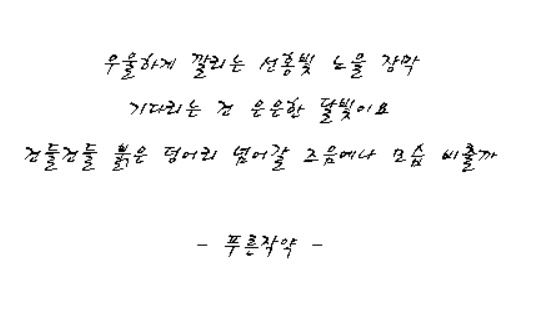 우울하게 깔리는 선홍빛 노을 장막
기다리는 건 은은한 달빛이요
건들건들 붉은 덩어리 넘어갈 즈음에나 모습 비출까
- 푸른작약 -